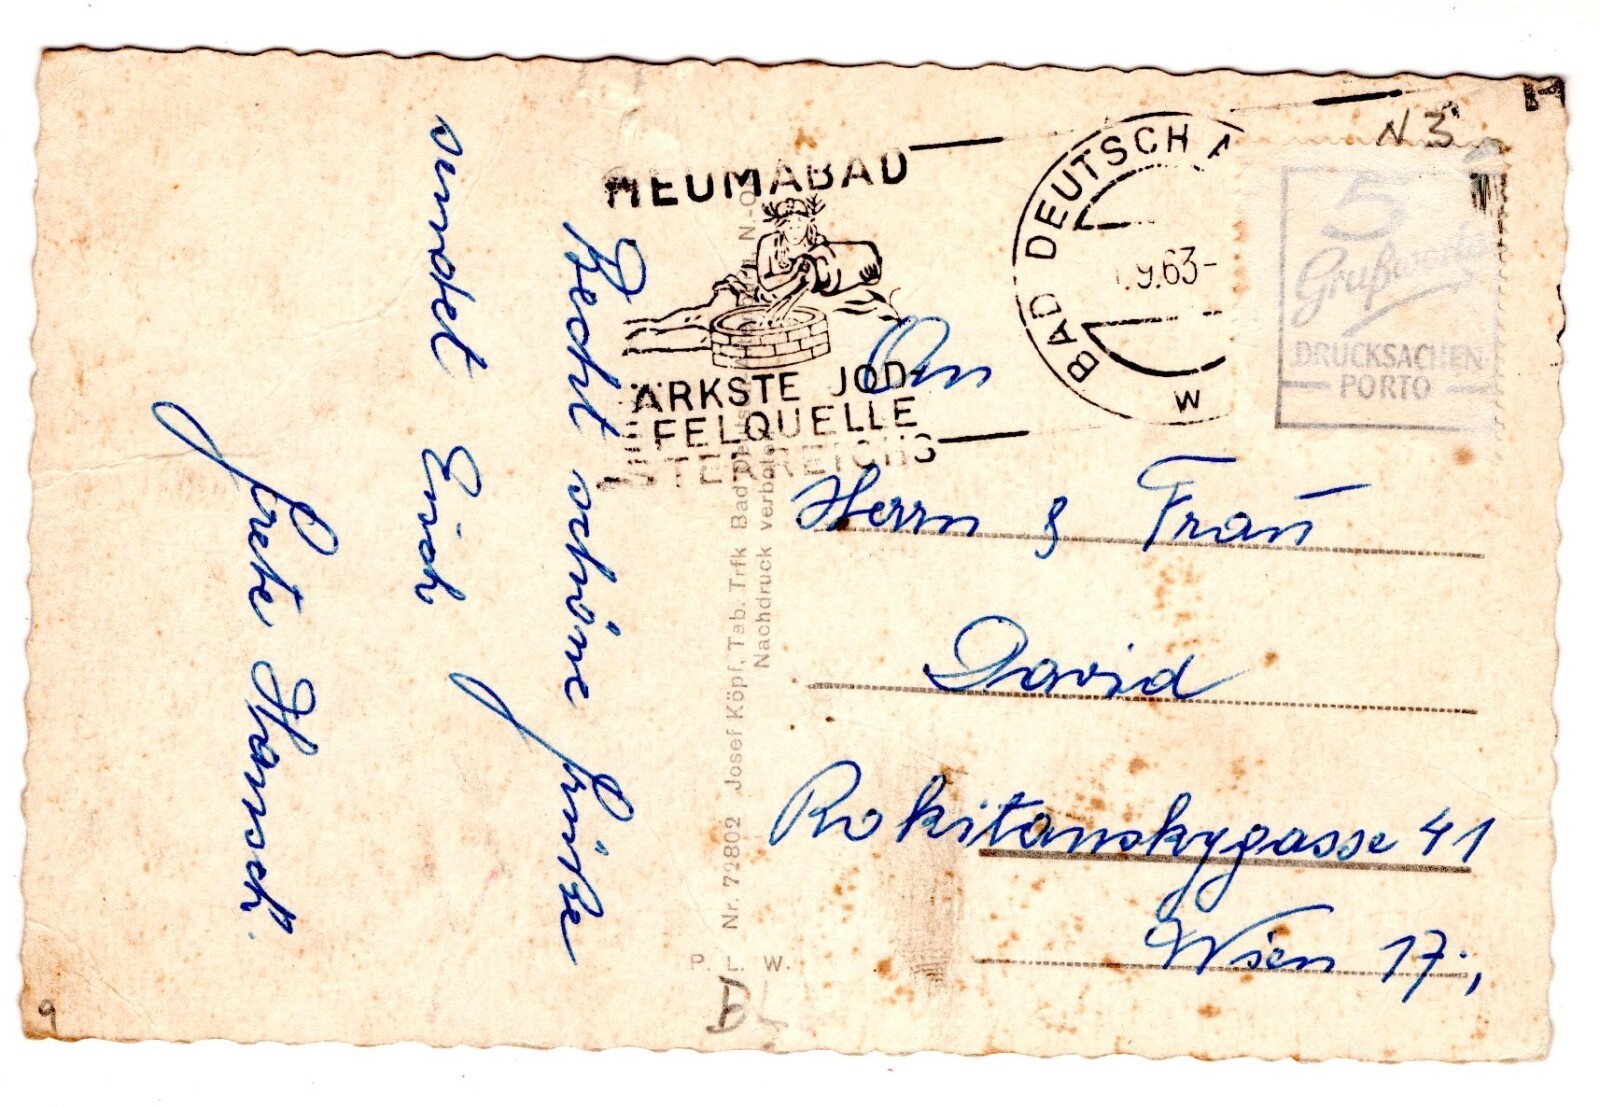 Recht schöne Grüße
sendet Euch
Grete Hansch.
HEUMABAD
ÄRKSTE JOD-
EFELQUELLE
STERREICHS
BAD DEUTSCH A
.9.63-
W
N 3
5
Grußworte
DRUCKSACHEN
PORTO
An
Herrn & Frau
David
Rokitanskygasse 41
Wien 17.,
Nr. 72802 Josef Köpf, Tab. Trfk Bad
Nachdruck verboten
P. L. W.
BL
9